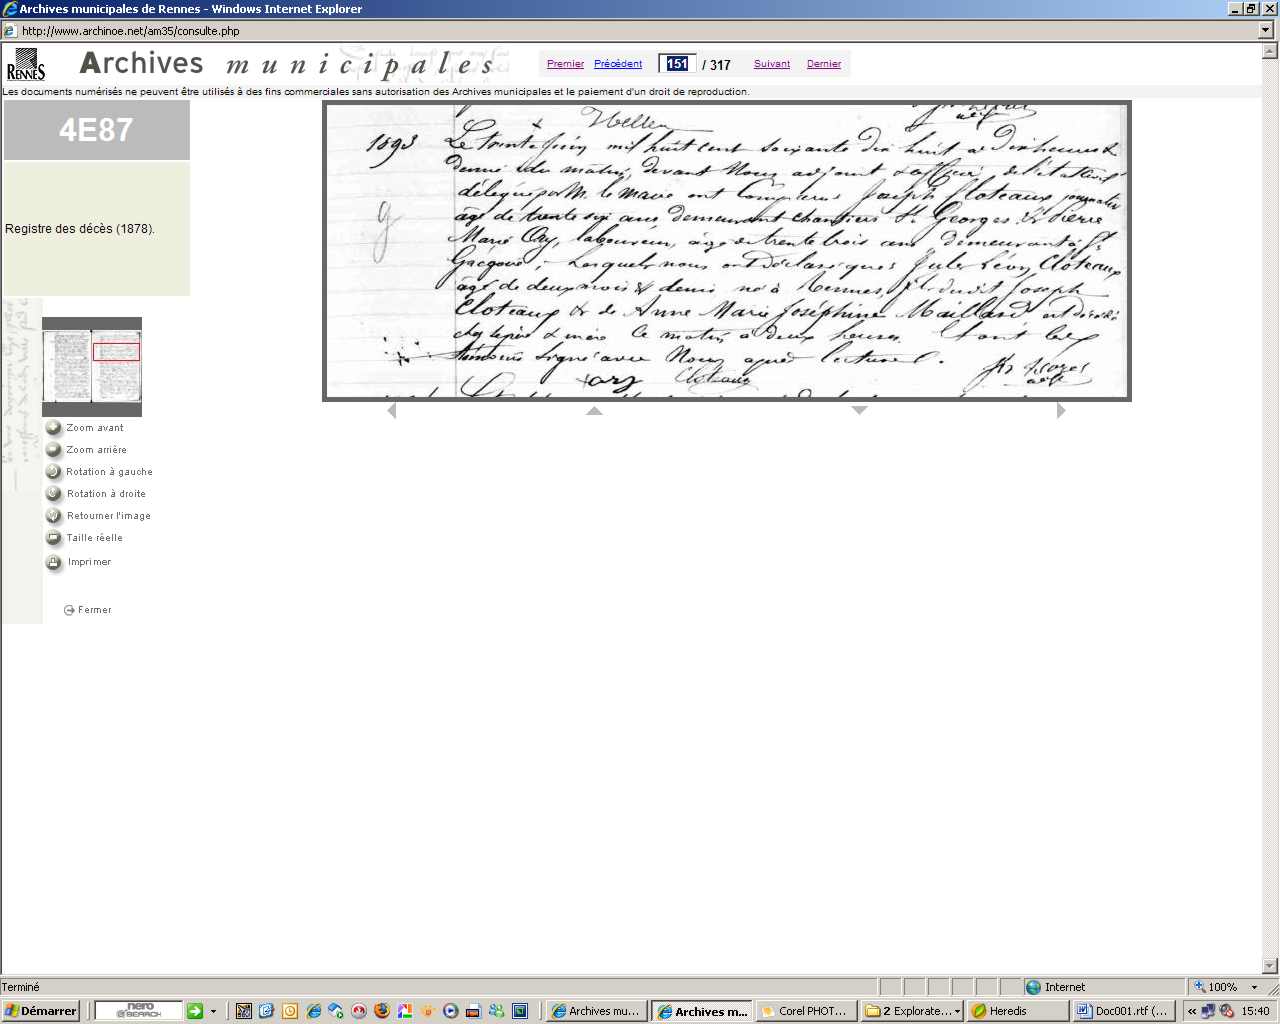 Archives municipales de Rennes - Windows Internet Explorer
http://www.archinoe.net/am35/consulte.php
RENNES
Archives municipales
Premier Précédent 151 / 317 Suivant Dernier
Les documents numérisés ne peuvent être utilisés à des fins commerciales sans autorisation des Archives municipales et le paiement d'un droit de reproduction.
4E87
Registre des décès (1878).
1093
Le trente juin mil huit cent soixante dix huit à dix heures &
demie du matin, devant Nous adjoint
délégué par M. le Maire ont comparu Joseph Cloteaux journalier
âgé de trente six ans demeurant chantiers St Georges & Pierre
Marie Ory, laboureur, âgé de trente trois ans, demeurant à St
lesquels nous ont déclaré que Jules Léon Cloteaux
âgé de deux mois & demi né à Rennes, fils dudit Joseph
Cloteaux & de Anne Marie Joséphine Maillard est décédé
chez ses père & mère ce matin à deux heures
témoins signé avec Nous après lecture
Ory Cloteaux
Zoom avant
Zoom arrière
Rotation à gauche
Rotation à droite
Retourner l'image
Taille réelle
Imprimer
Fermer
Terminé
Internet
100%
Démarrer
nero
SEARCH
Archives mu...
Archives m...
Corel PHOT...
2 Explorate...
Heredis
Doc001.rtf (...
15:40